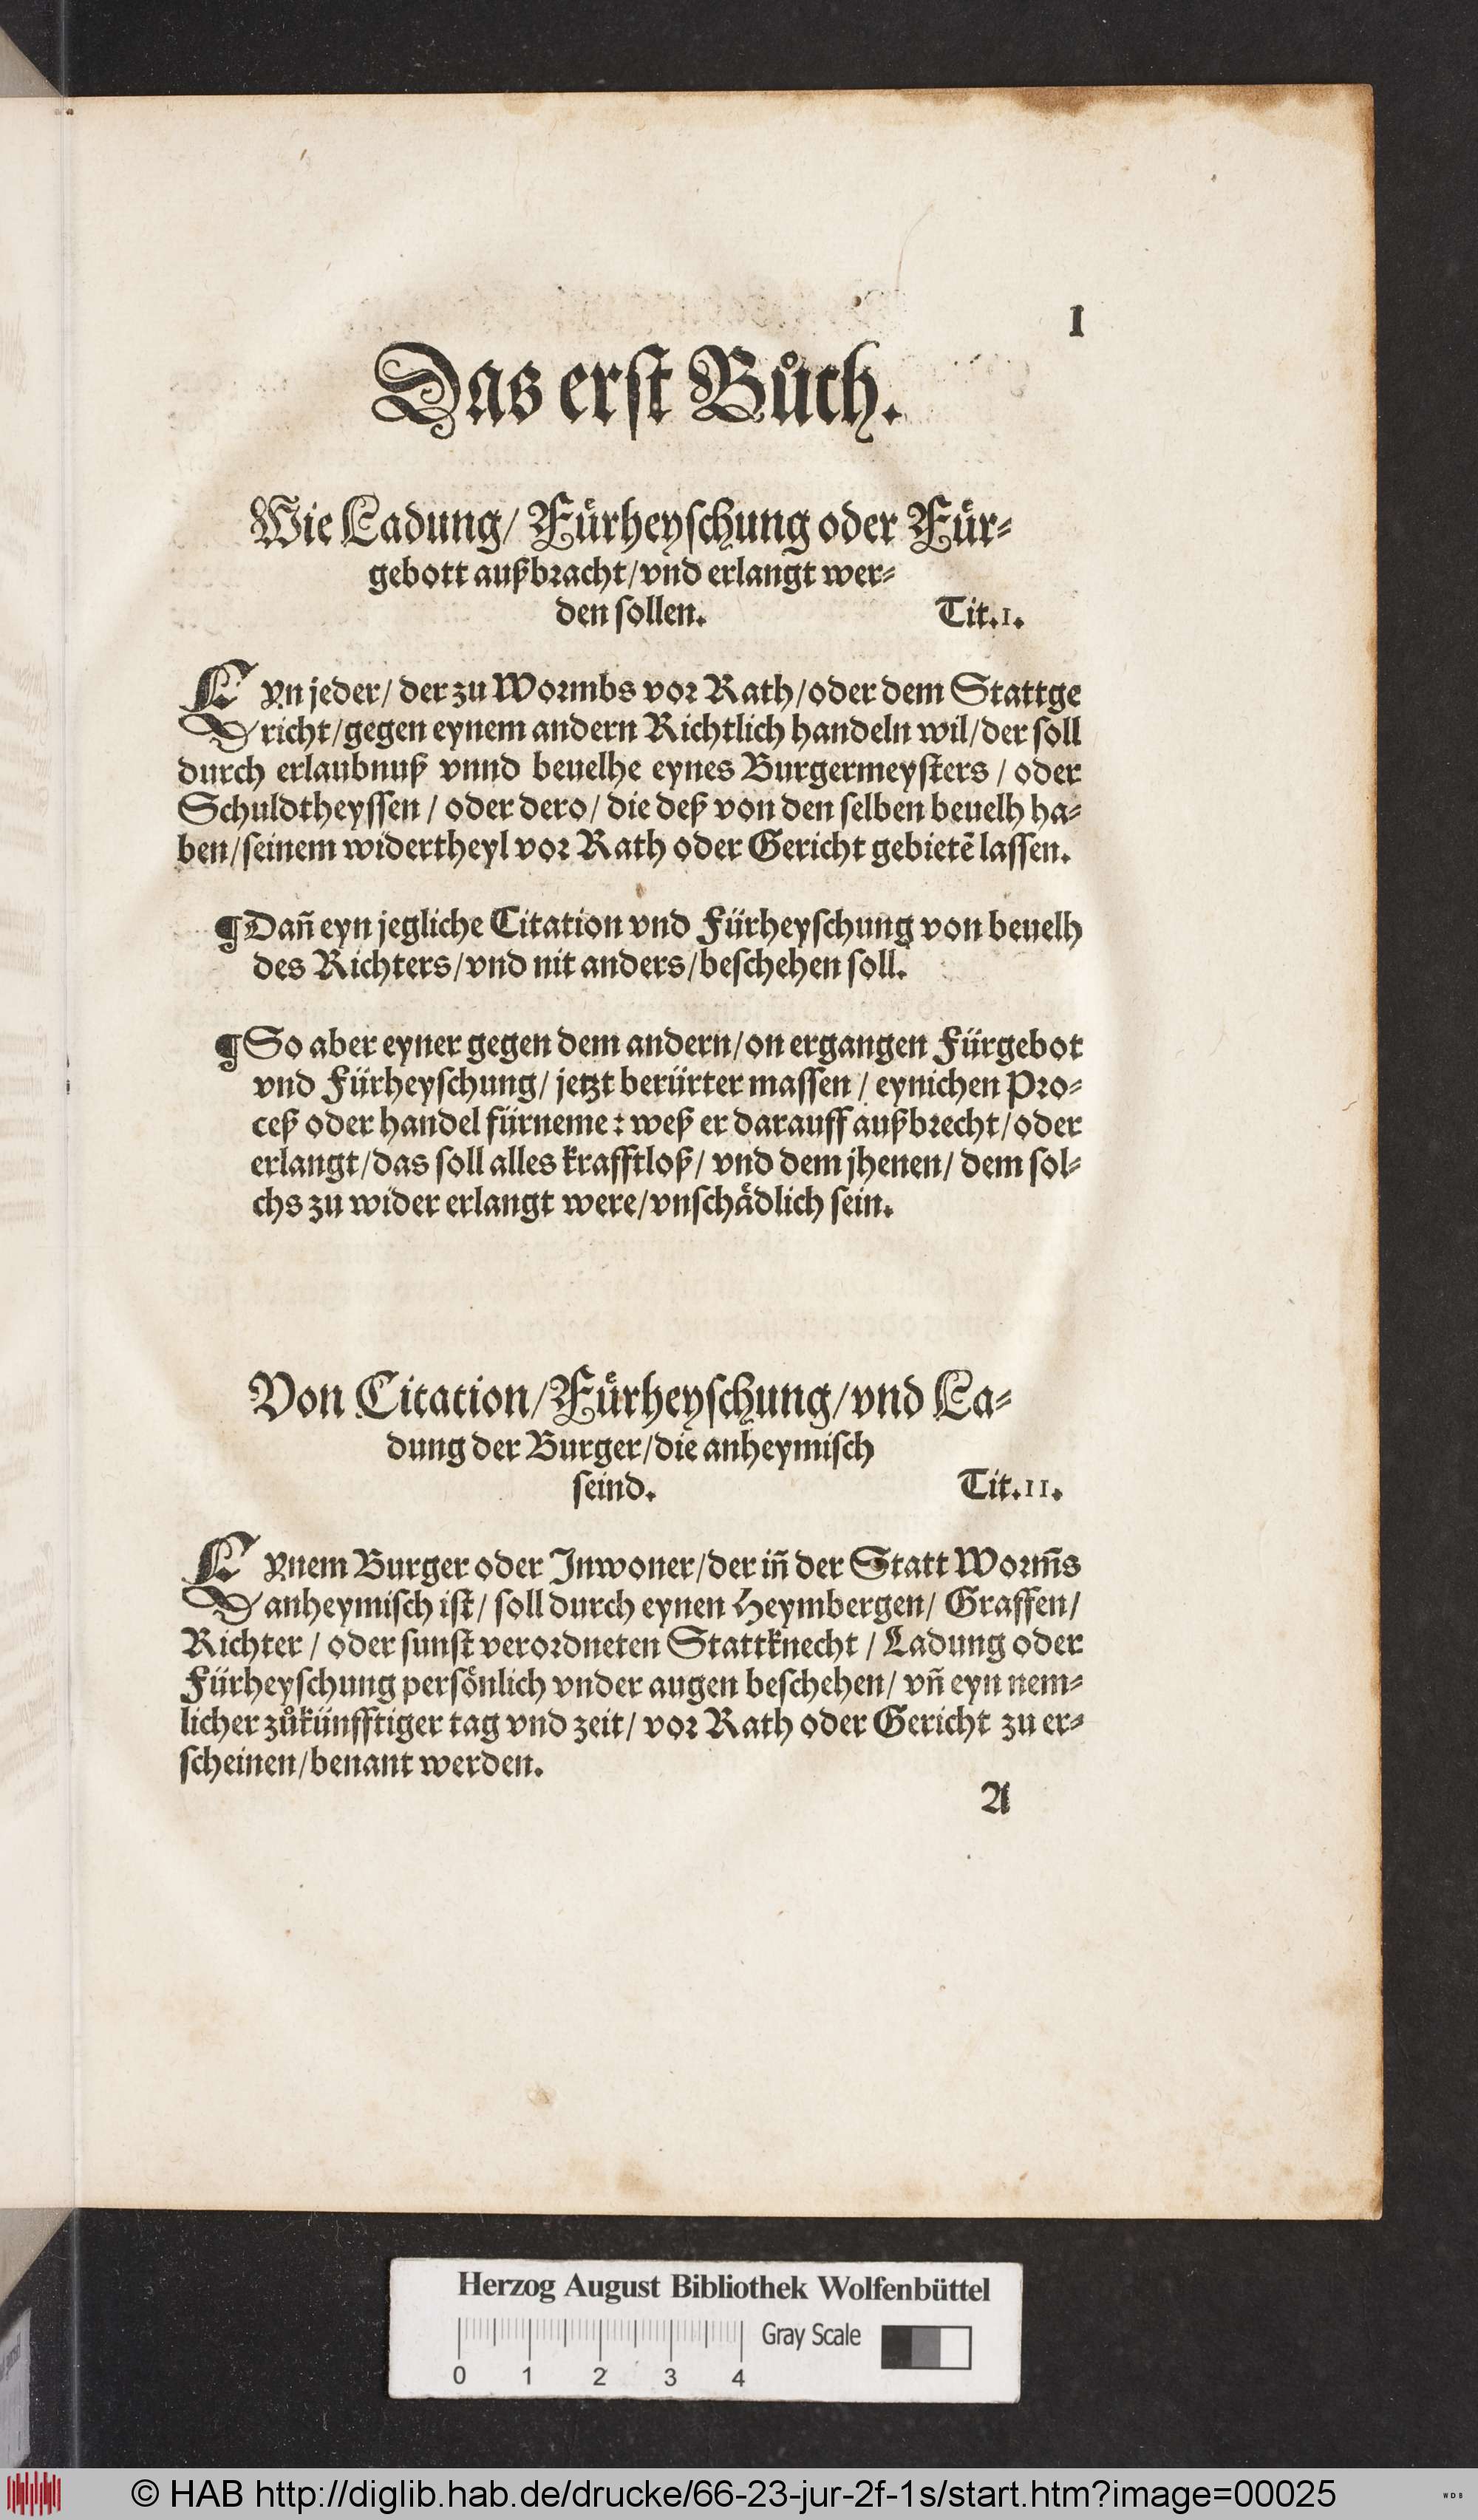 I
Das erst Bůch.
Wie Ladung/ Fürheyschung oder Für-
gebott außbracht/vnd erlangt wer-
den sollen. Tit.I.
EYn jeder/ der zu Wormbs vor Rath/oder dem Stattge
richt/gegen eynem andern Richtlich handeln wil/der soll
durch erlaubnuß vnnd beuelhe eynes Burgermeysters / oder
Schuldtheyssen / oder dero/ die deß von den selben beuelh ha-
ben/seinem widertheyl vor Rath oder Gericht gebietē lassen.
¶Dañ eyn jegliche Citation vnd Fürheyschung von beuelh
des Richters/vnd nit anders/beschehen soll.
¶So aber eyner gegen dem andern/on ergangen Fürgebot
vnd Fürheyschung/ jetzt berürter massen / eynichen Pro-
ceß oder handel fürneme: weß er darauff außbrecht/oder
erlangt/das soll alles krafftloß/ vnd dem jhenen/ dem sol-
chs zu wider erlangt were/vnschädlich sein.
Von Citation/Fürheyschung/vnd La-
dung der Burger/die anheymisch
seind. Tit.II.
EYnem Burger oder Inwoner/der iñ der Statt Worm̄s
anheymisch ist/ soll durch eynen Heymbergen/ Graffen/
Richter / oder sunst verordneten Stattknecht / Ladung oder
Fürheyschung persönlich vnder augen beschehen/ vñ eyn nem-
licher zůkünfftiger tag vnd zeit/ vor Rath oder Gericht zu er-
scheinen/benant werden.
A
Herzog August Bibliothek Wolfenbüttel
Gray Scale
0 1 2 3 4
© HAB http://diglib.hab.de/drucke/66-23-jur-2f-1s/start.htm?image=00025
WDB